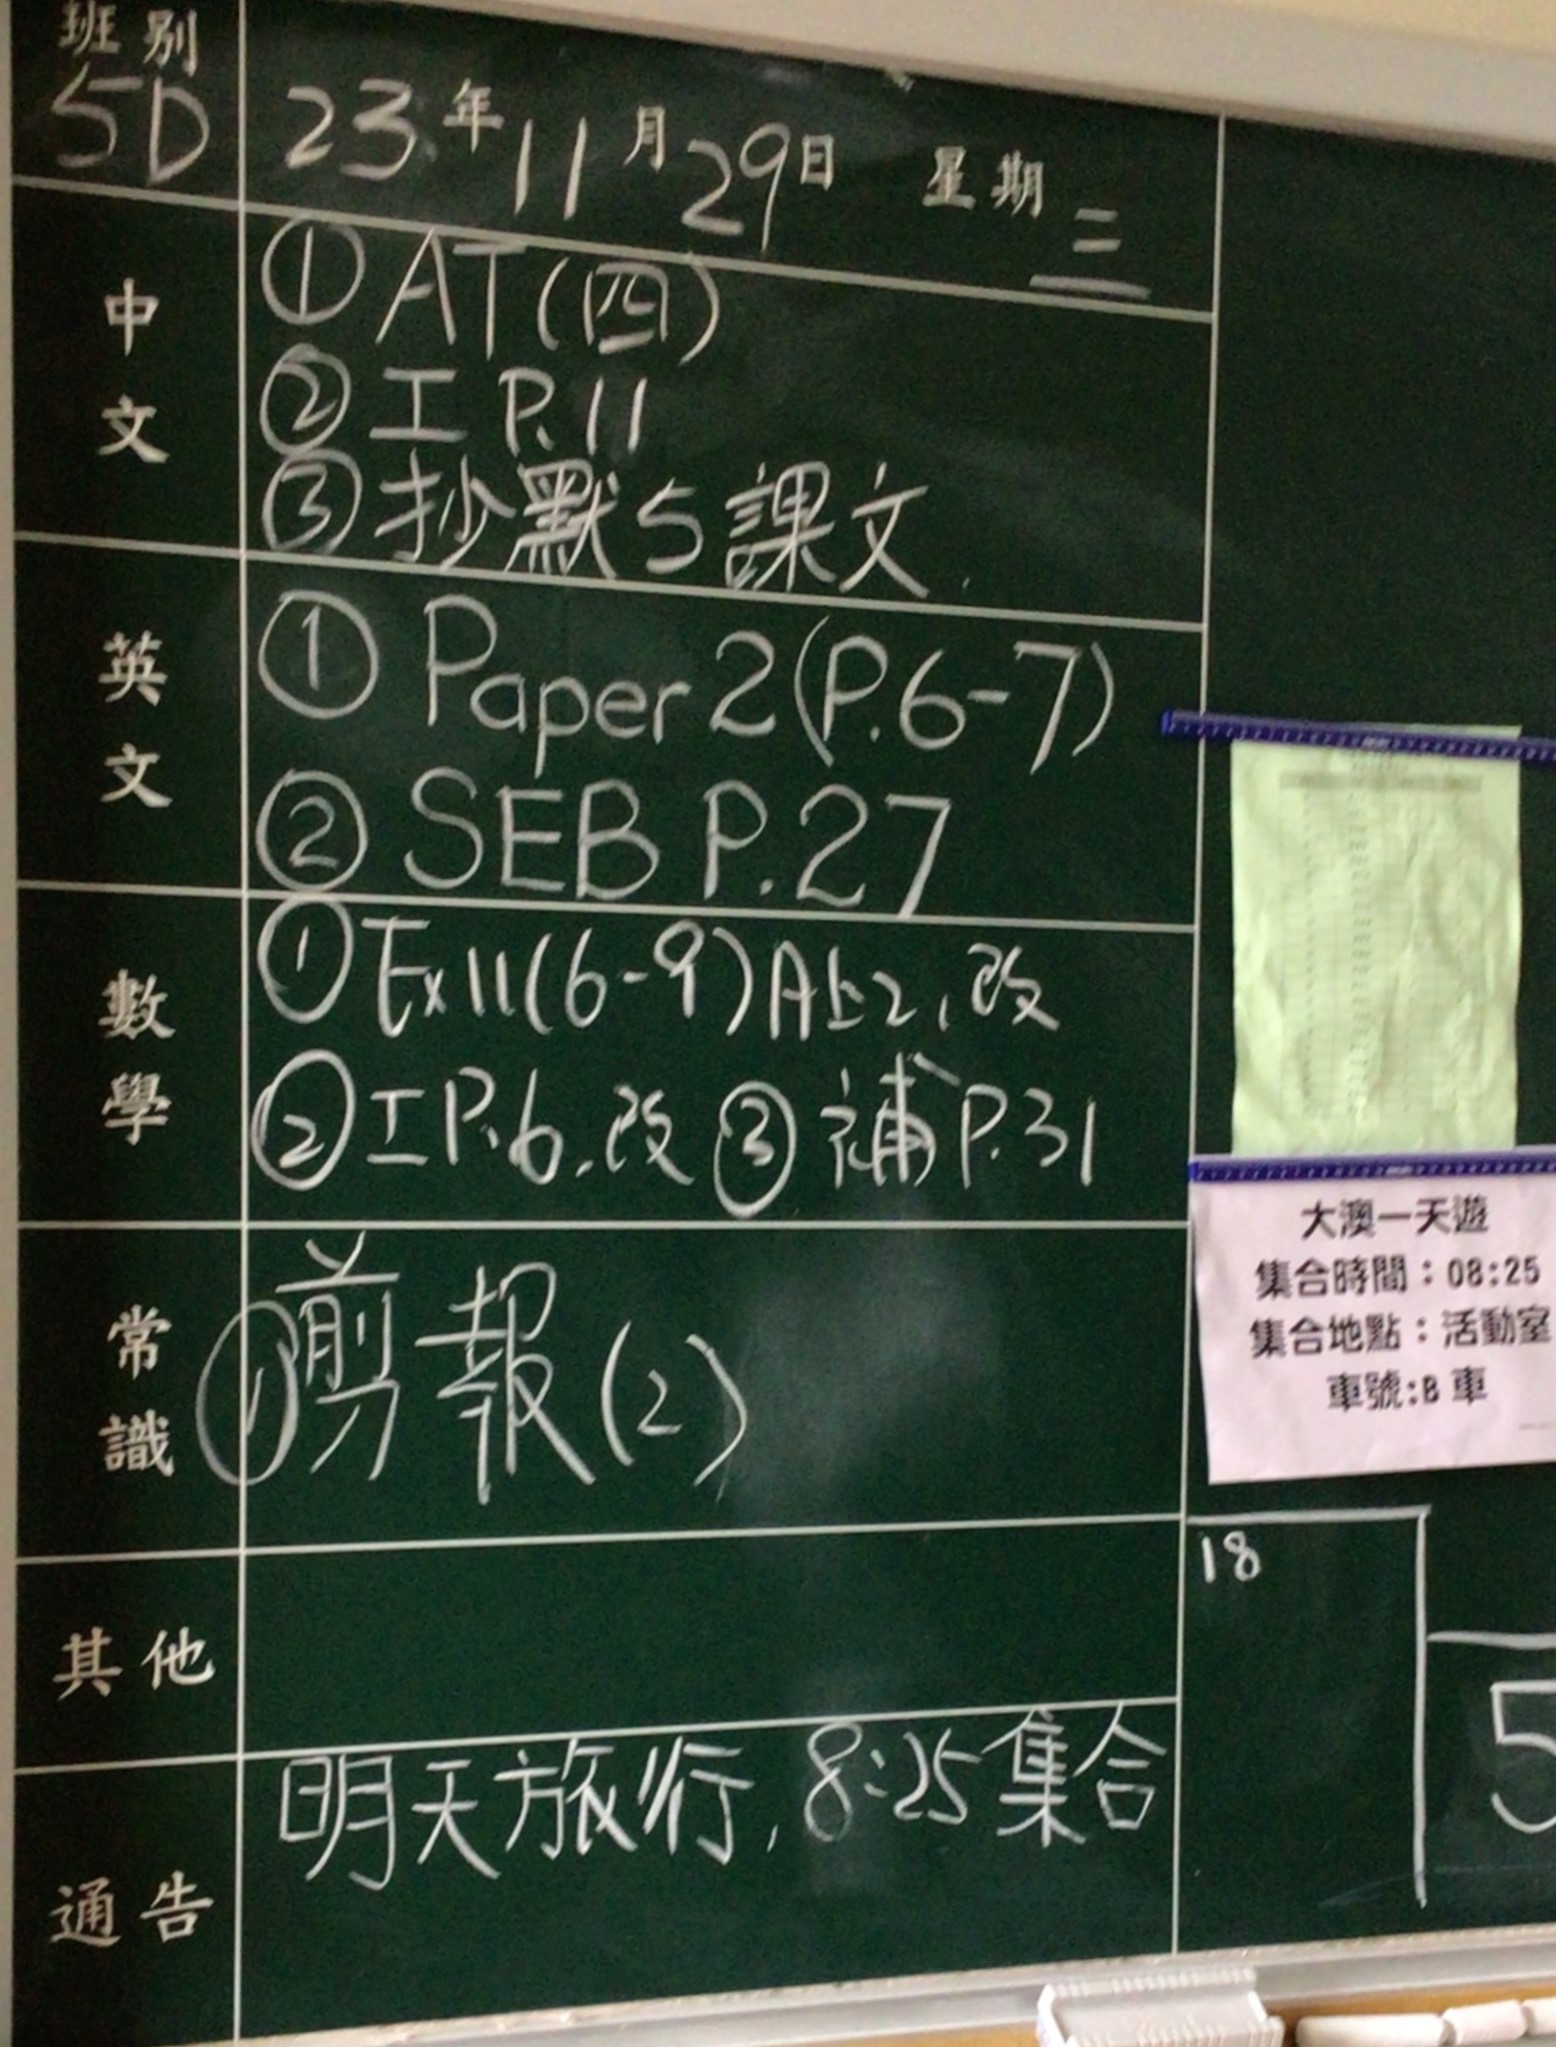 班別
5D
23年11月29日 星期三
中文
① AT(四)
② 工 P.11
③ 抄默5課文
英文
① Paper 2 (P.6-7)
② SEB P.27
數學
① Ex11(6-9)A上2,改
② 工P.6,改 ③ 補P.31
常識
① 剪報(2)
其他
通告
明天旅行,8:25集合
大澳一天遊
集合時間:08:25
集合地點:活動室
車號:B 車
18
5